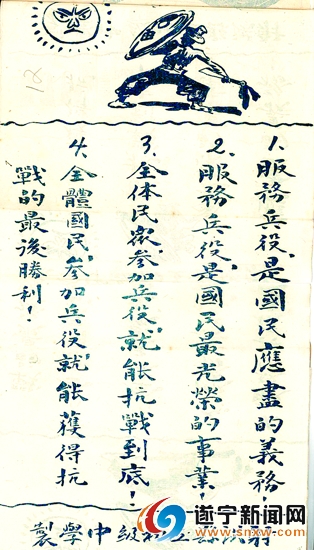 12
1.服務兵役,是國民應盡的義務!
2.服務兵役,是國民最光榮的事業!
3.全体民眾參加兵役,就能抗戰到底!
4.全體國民,參加兵役,就能獲得抗
戰的最後勝利!
射洪縣立初級中學製
遂宁新闻网
www.snxw.com